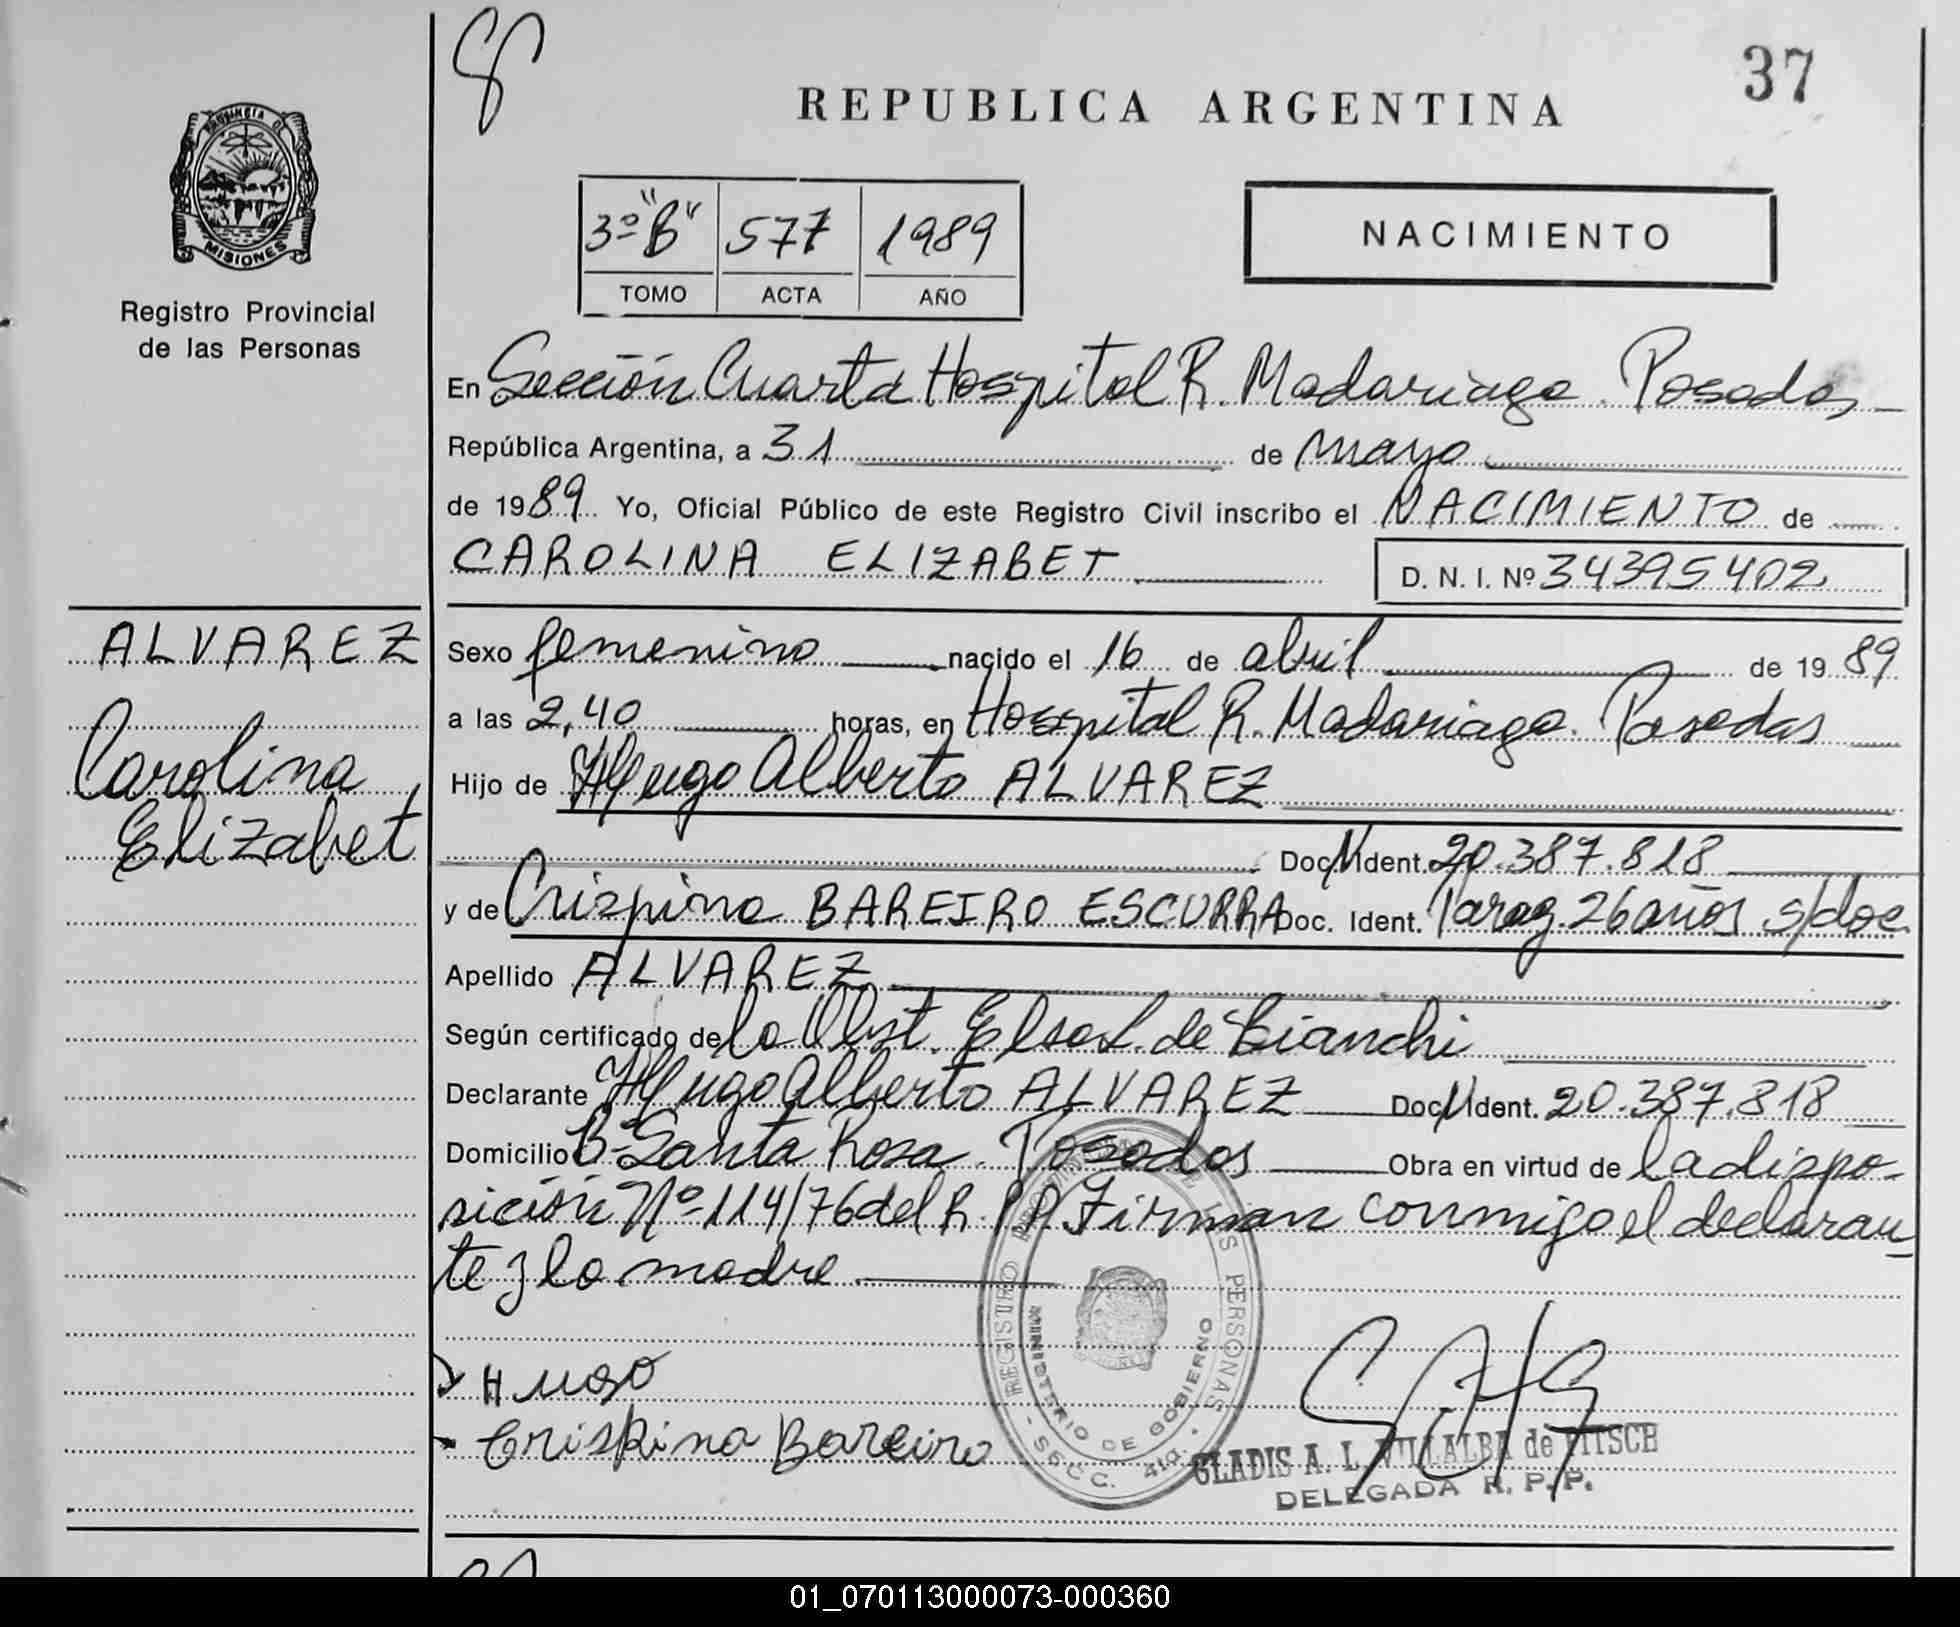 37
REPUBLICA ARGENTINA
PROVINCIA DE
MISIONES
Registro Provincial
de las Personas
3º "B" 577 1989
TOMO ACTA AÑO
NACIMIENTO
En Sección Cuarta Hospital R. Madariaga. Posadas
República Argentina, a 31 de mayo
de 1989 Yo, Oficial Público de este Registro Civil inscribo el NACIMIENTO de
CAROLINA ELIZABET D. N. I. Nº 34395402
ALVAREZ
Carolina
Elizabet
Sexo femenino nacido el 16 de abril de 1989
a las 2,40 horas, en Hospital R. Madariaga. Posadas
Hijo de Hugo Alberto ALVAREZ
Doc. Ident. 20.387.818
y de Crispina BAREIRO ESCURRA Doc. Ident. Parag. 26 años s/doc.
Apellido ALVAREZ
Según certificado de la Obst. Elsa L. de Bianchi
Declarante Hugo Alberto ALVAREZ Doc. Ident. 20.387.818
Domicilio Bº Santa Rosa. Posadas Obra en virtud de la dispo-
sición Nº 114/76 del R.P.P. Firman conmigo el declaran-
te y la madre
Hugo
Crispina Bareiro
REGISTRO PROVINCIAL DE LAS PERSONAS
MINISTERIO DE GOBIERNO
SECC. 4ta.
GLADIS A. L. VILLALBA de PITSCH
DELEGADA R. P. P.
01_070113000073-000360